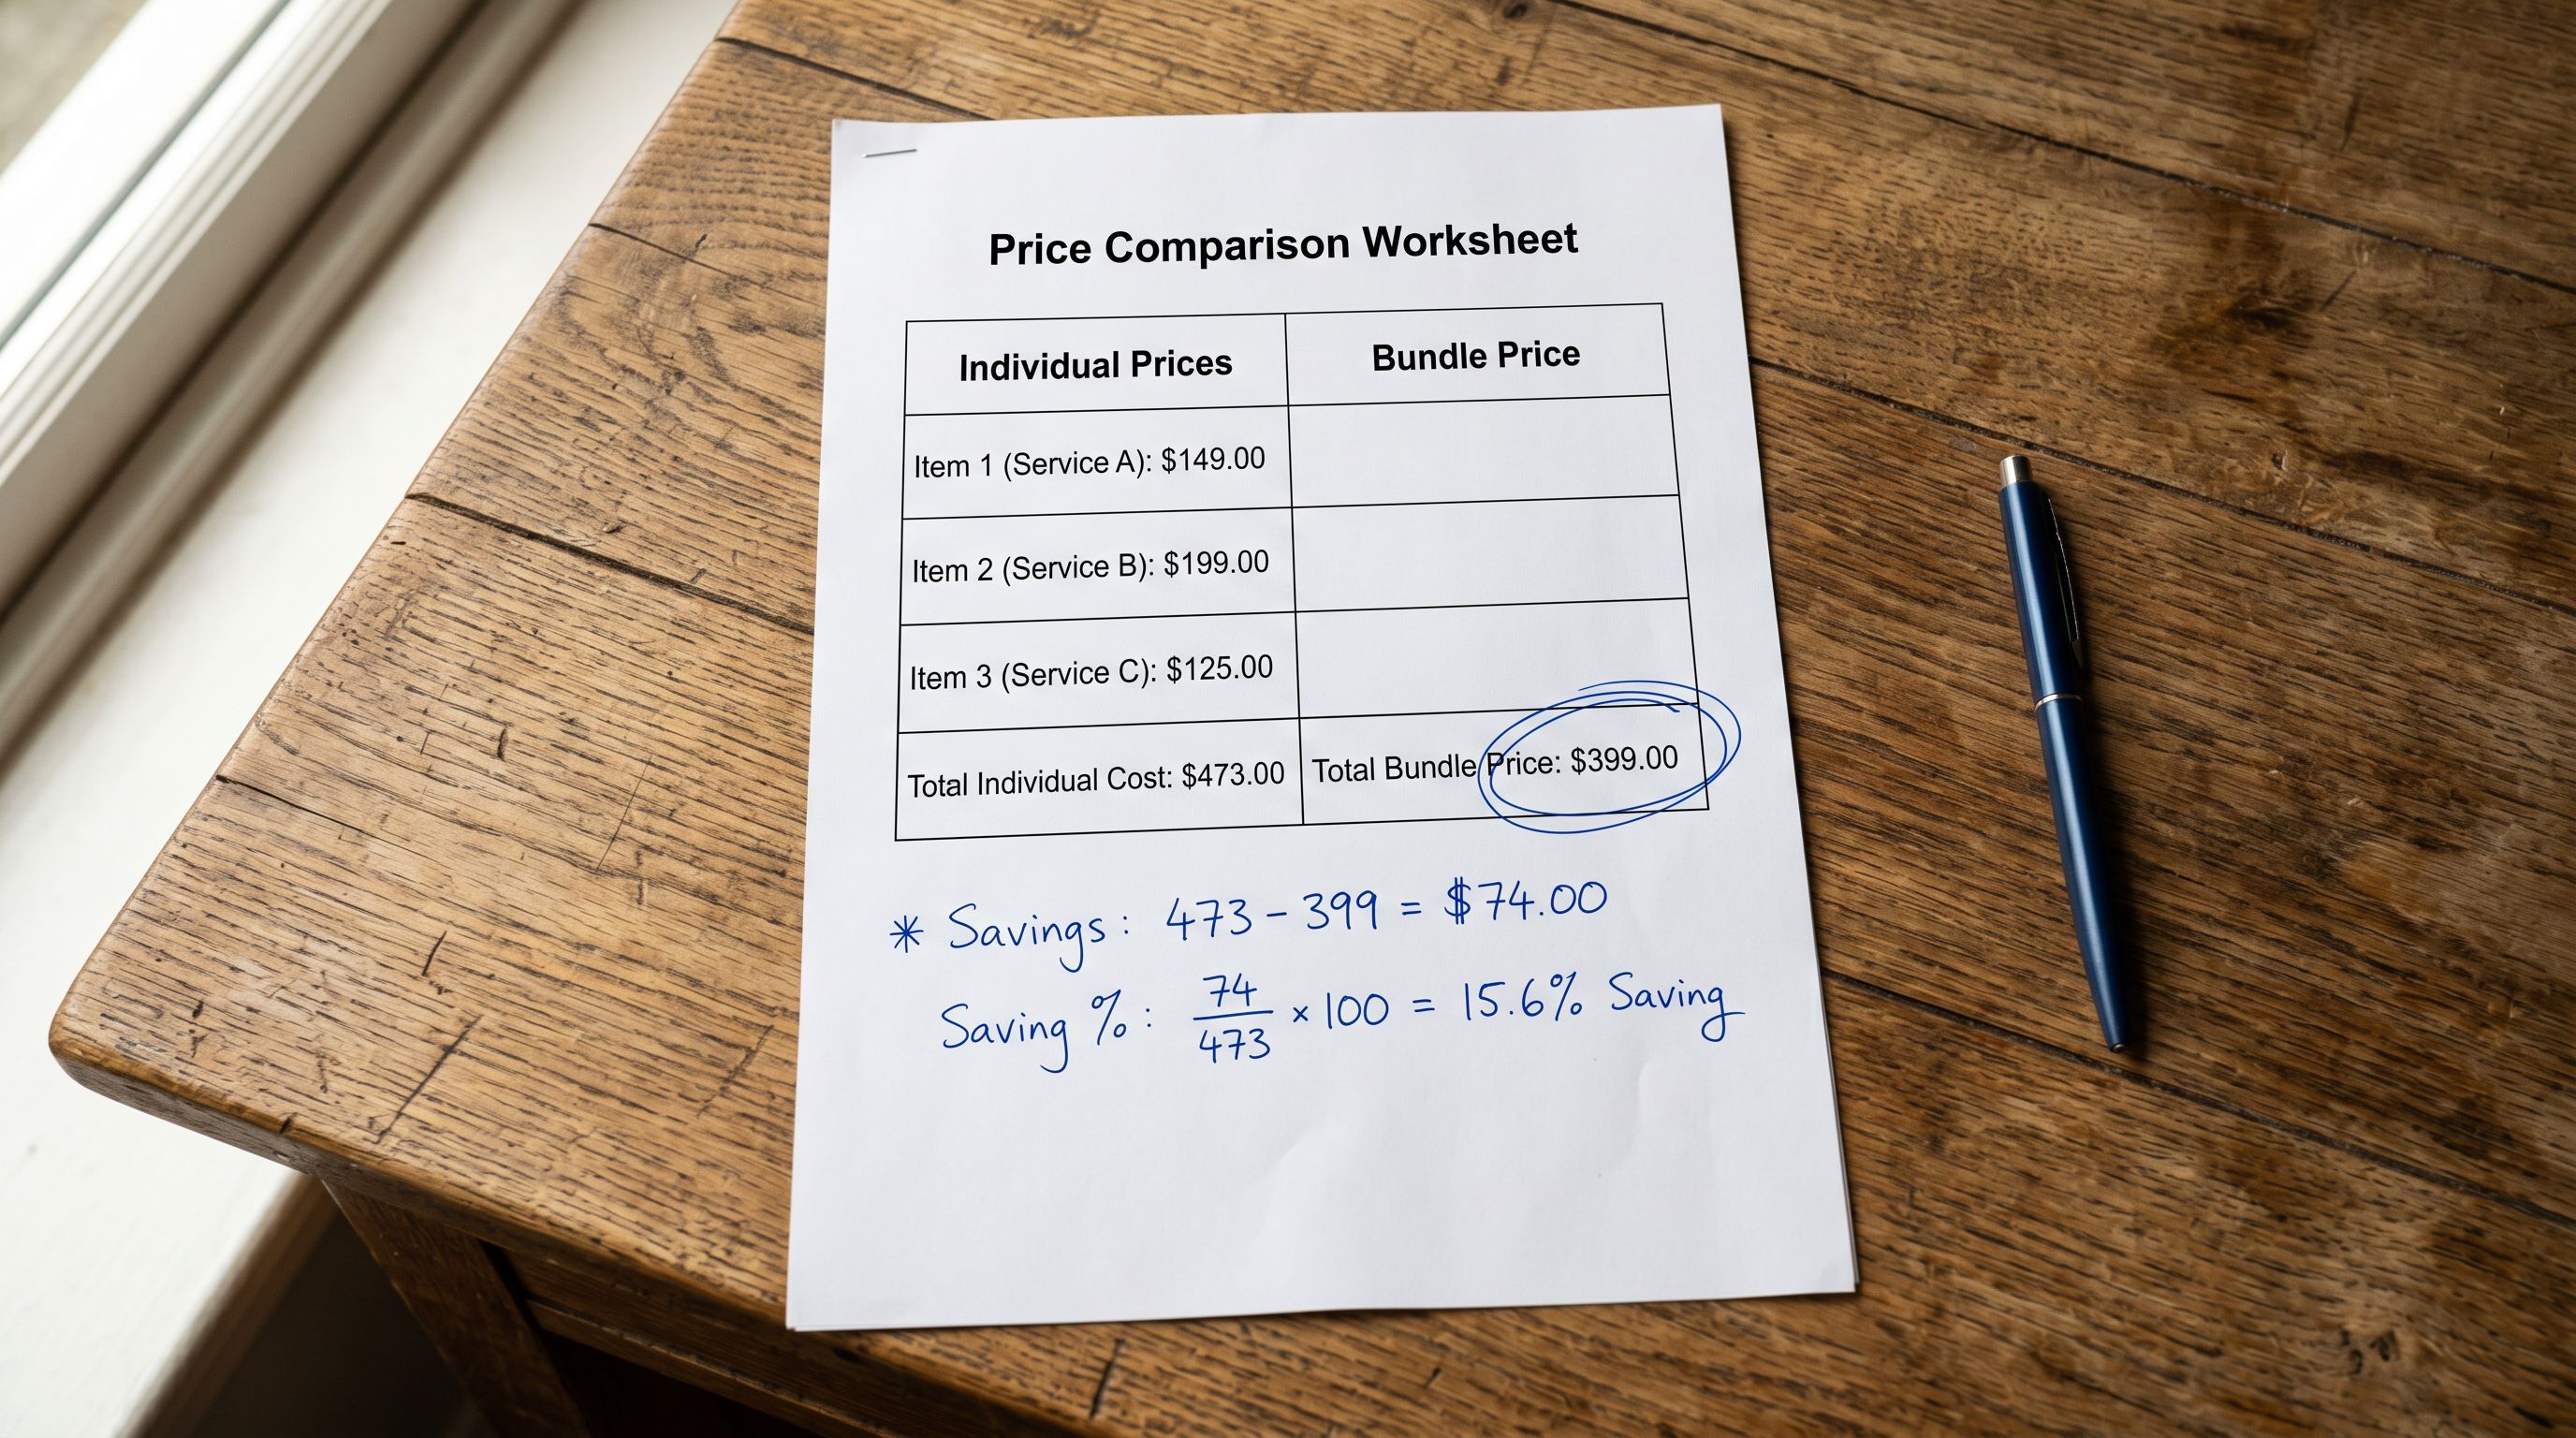 Price Comparison Worksheet
Individual Prices
Bundle Price
Item 1 (Service A): $149.00
Item 2 (Service B): $199.00
Item 3 (Service C): $125.00
Total Individual Cost: $473.00
Total Bundle Price: $399.00
* Savings: 473 - 399 = $74.00
Saving %: 74/473 × 100 = 15.6% Saving